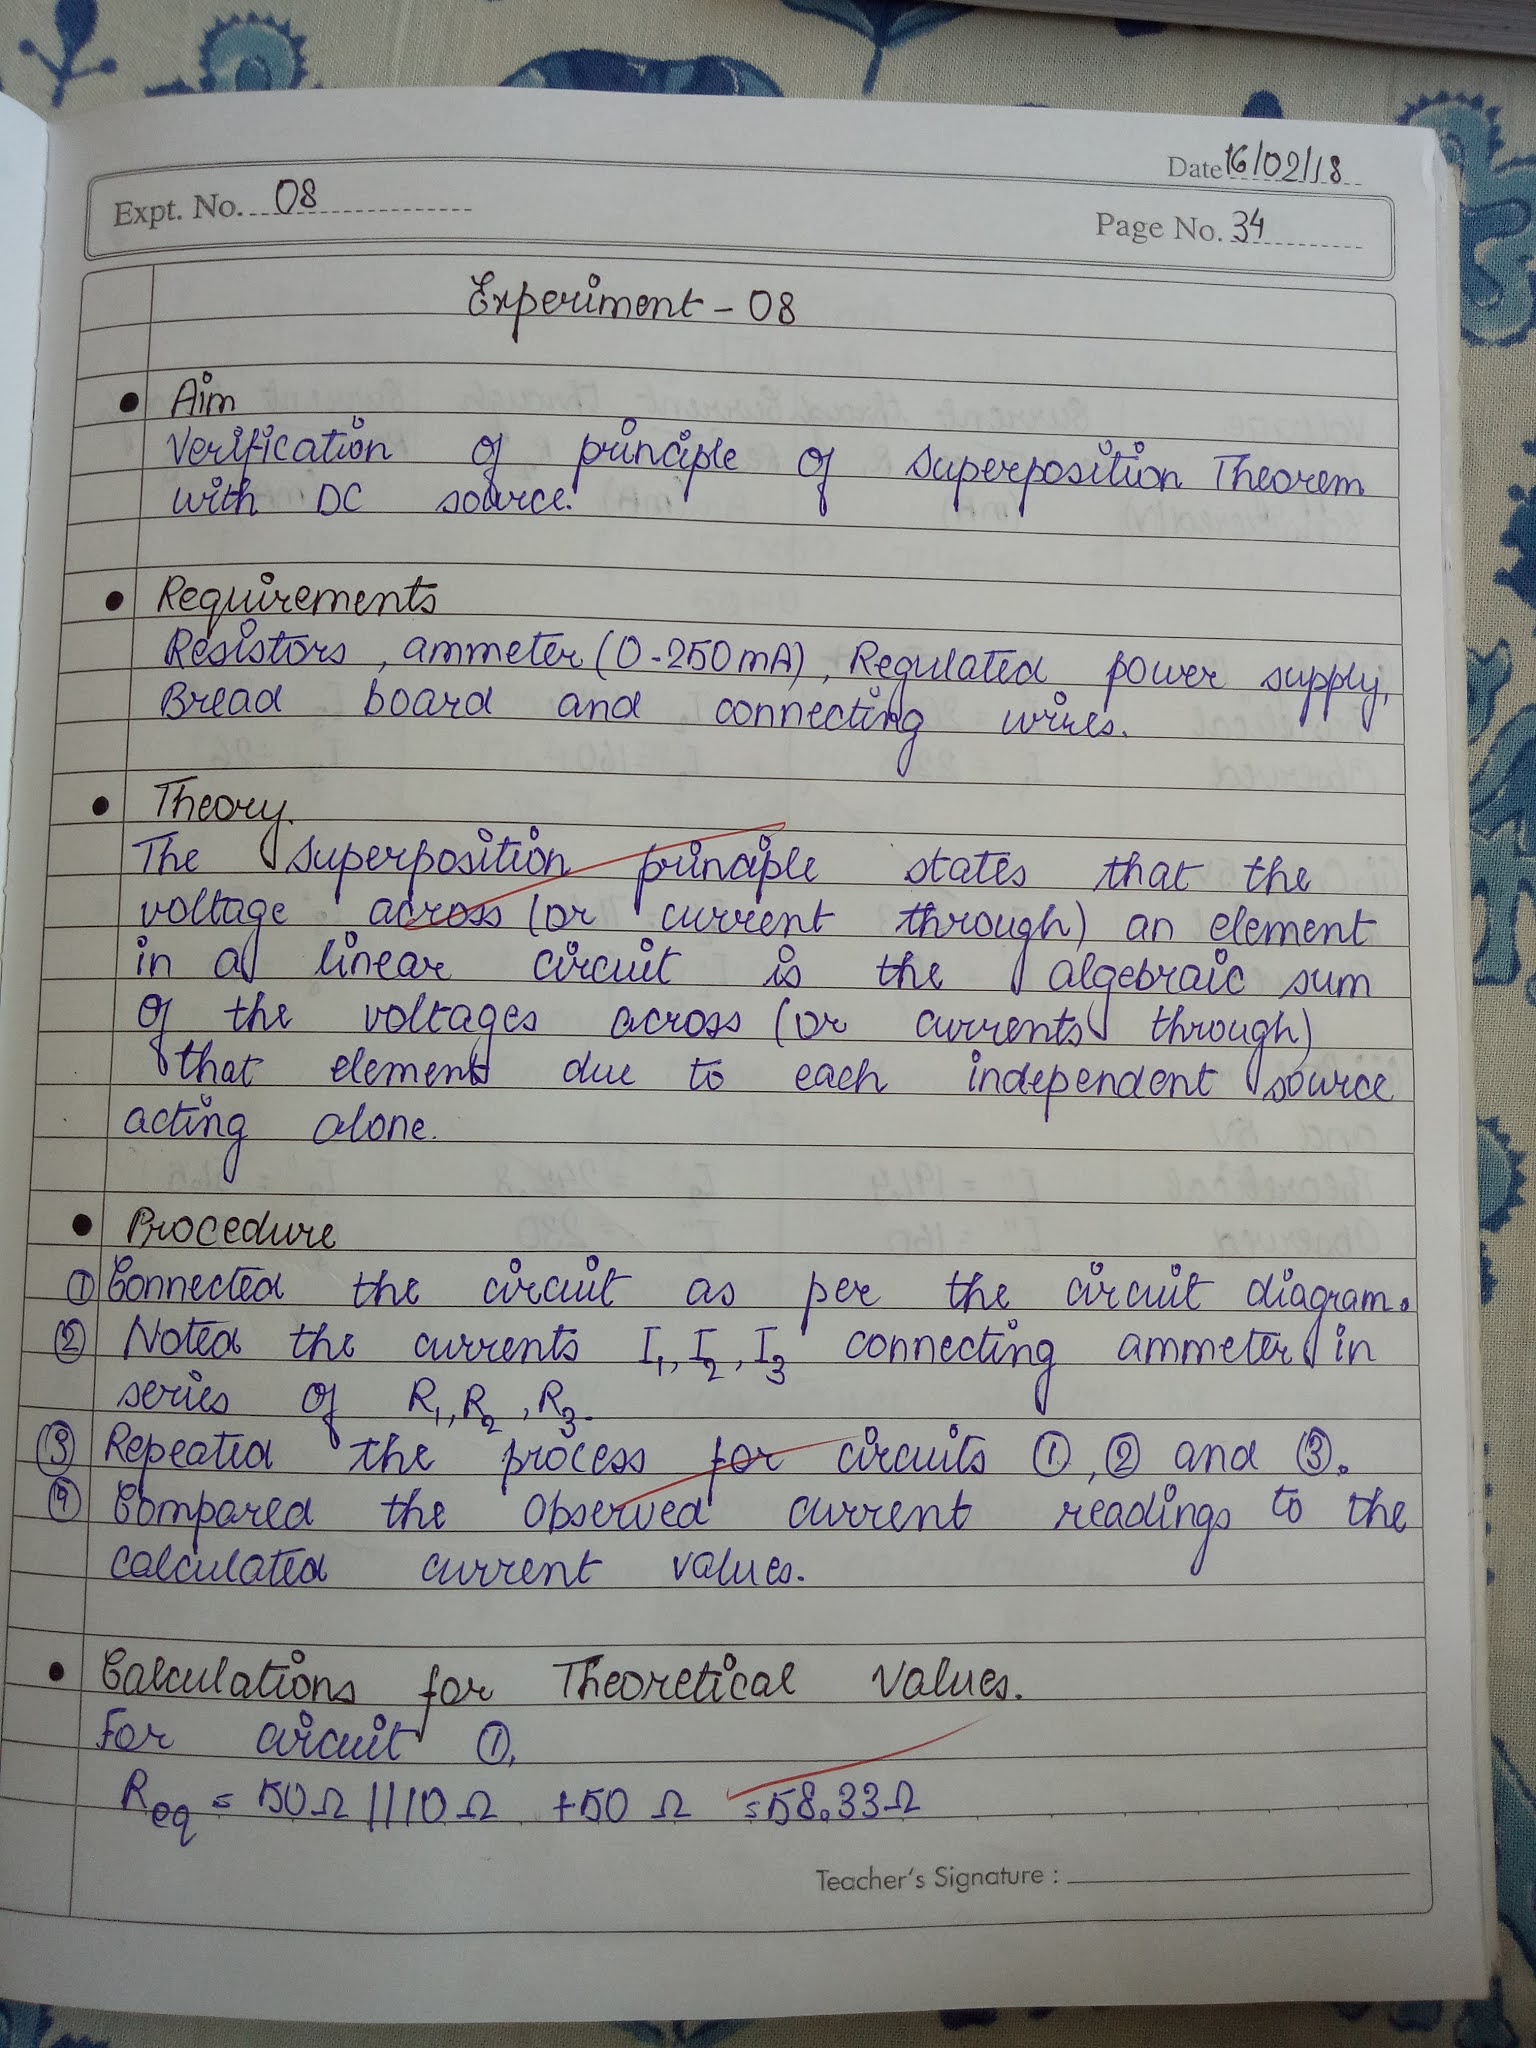 Date 16/02/18
Expt. No. 08
Page No. 34
Experiment - 08
• Aim
Verification of principle of Superposition Theorem
with DC source.
• Requirements
Resistors, ammeter (0-250mA), Regulated power supply,
Bread board and connecting wires.
• Theory.
The superposition principle states that the
voltage across (or current through) an element
in a linear circuit is the algebraic sum
of the voltages across (or currents through)
that element due to each independent source
acting alone.
• Procedure
① Connected the circuit as per the circuit diagram.
② Noted the currents I₁, I₂, I₃ connecting ammeter in
series of R₁, R₂, R₃.
③ Repeated the process for circuits ①, ② and ③.
④ Compared the observed current readings to the
calculated current values.
• Calculations for Theoretical Values.
For circuit ①,
Req = 50Ω || 10Ω + 50Ω = 58.33Ω
Teacher's Signature :